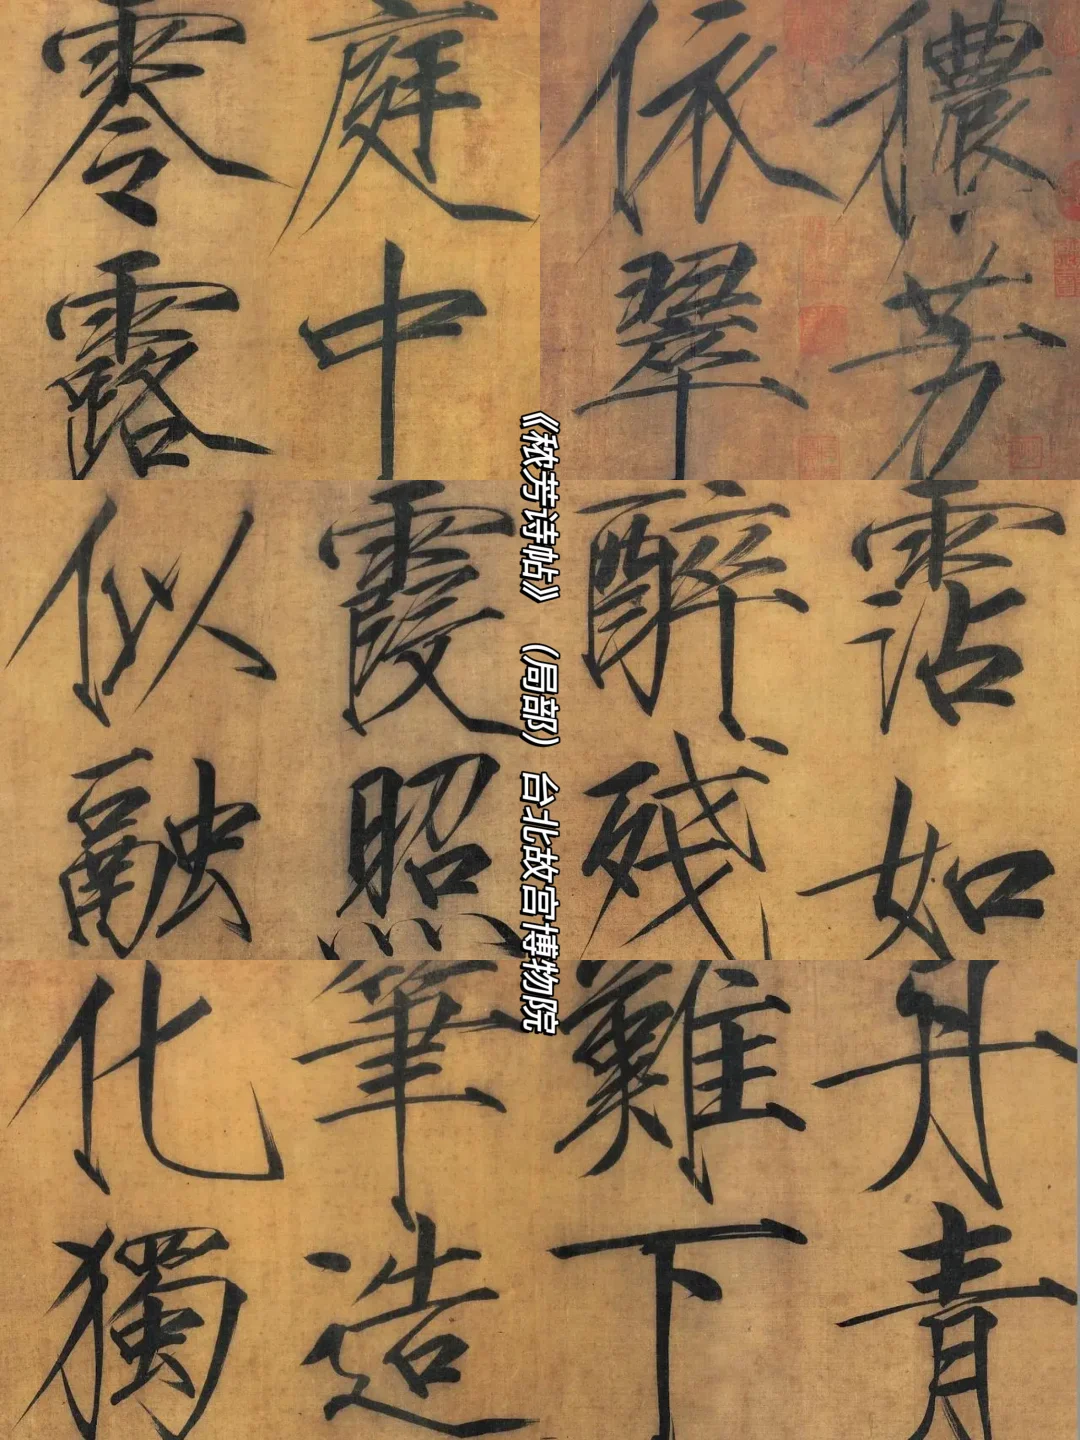 穠芳
依翠
庭中
零露
霑如
醉殘
霞照
似融
丹青
難下
筆造
化獨
《秾芳诗帖》（局部）台北故宫博物院